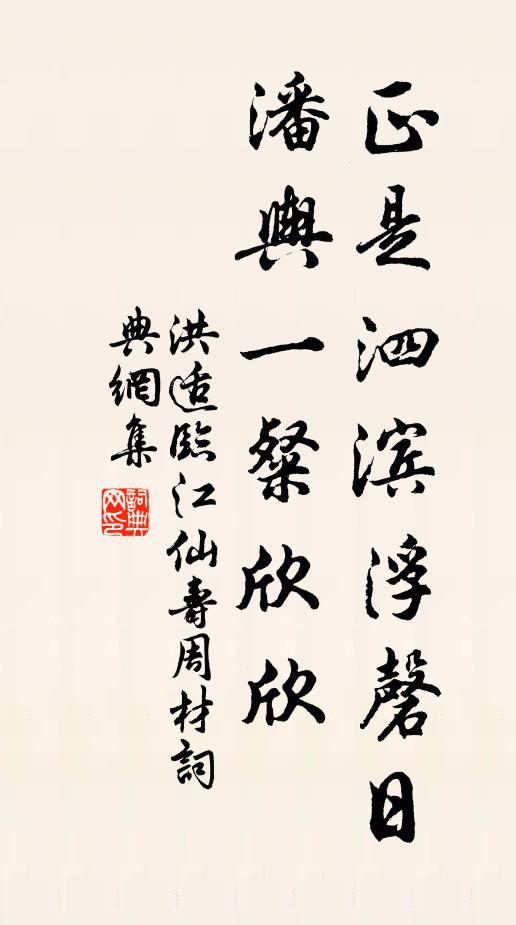 正是泗滨浮磬日
潘輿一粲欣欣
洪适臨江仙壽周材詞
典網集
詞典網印